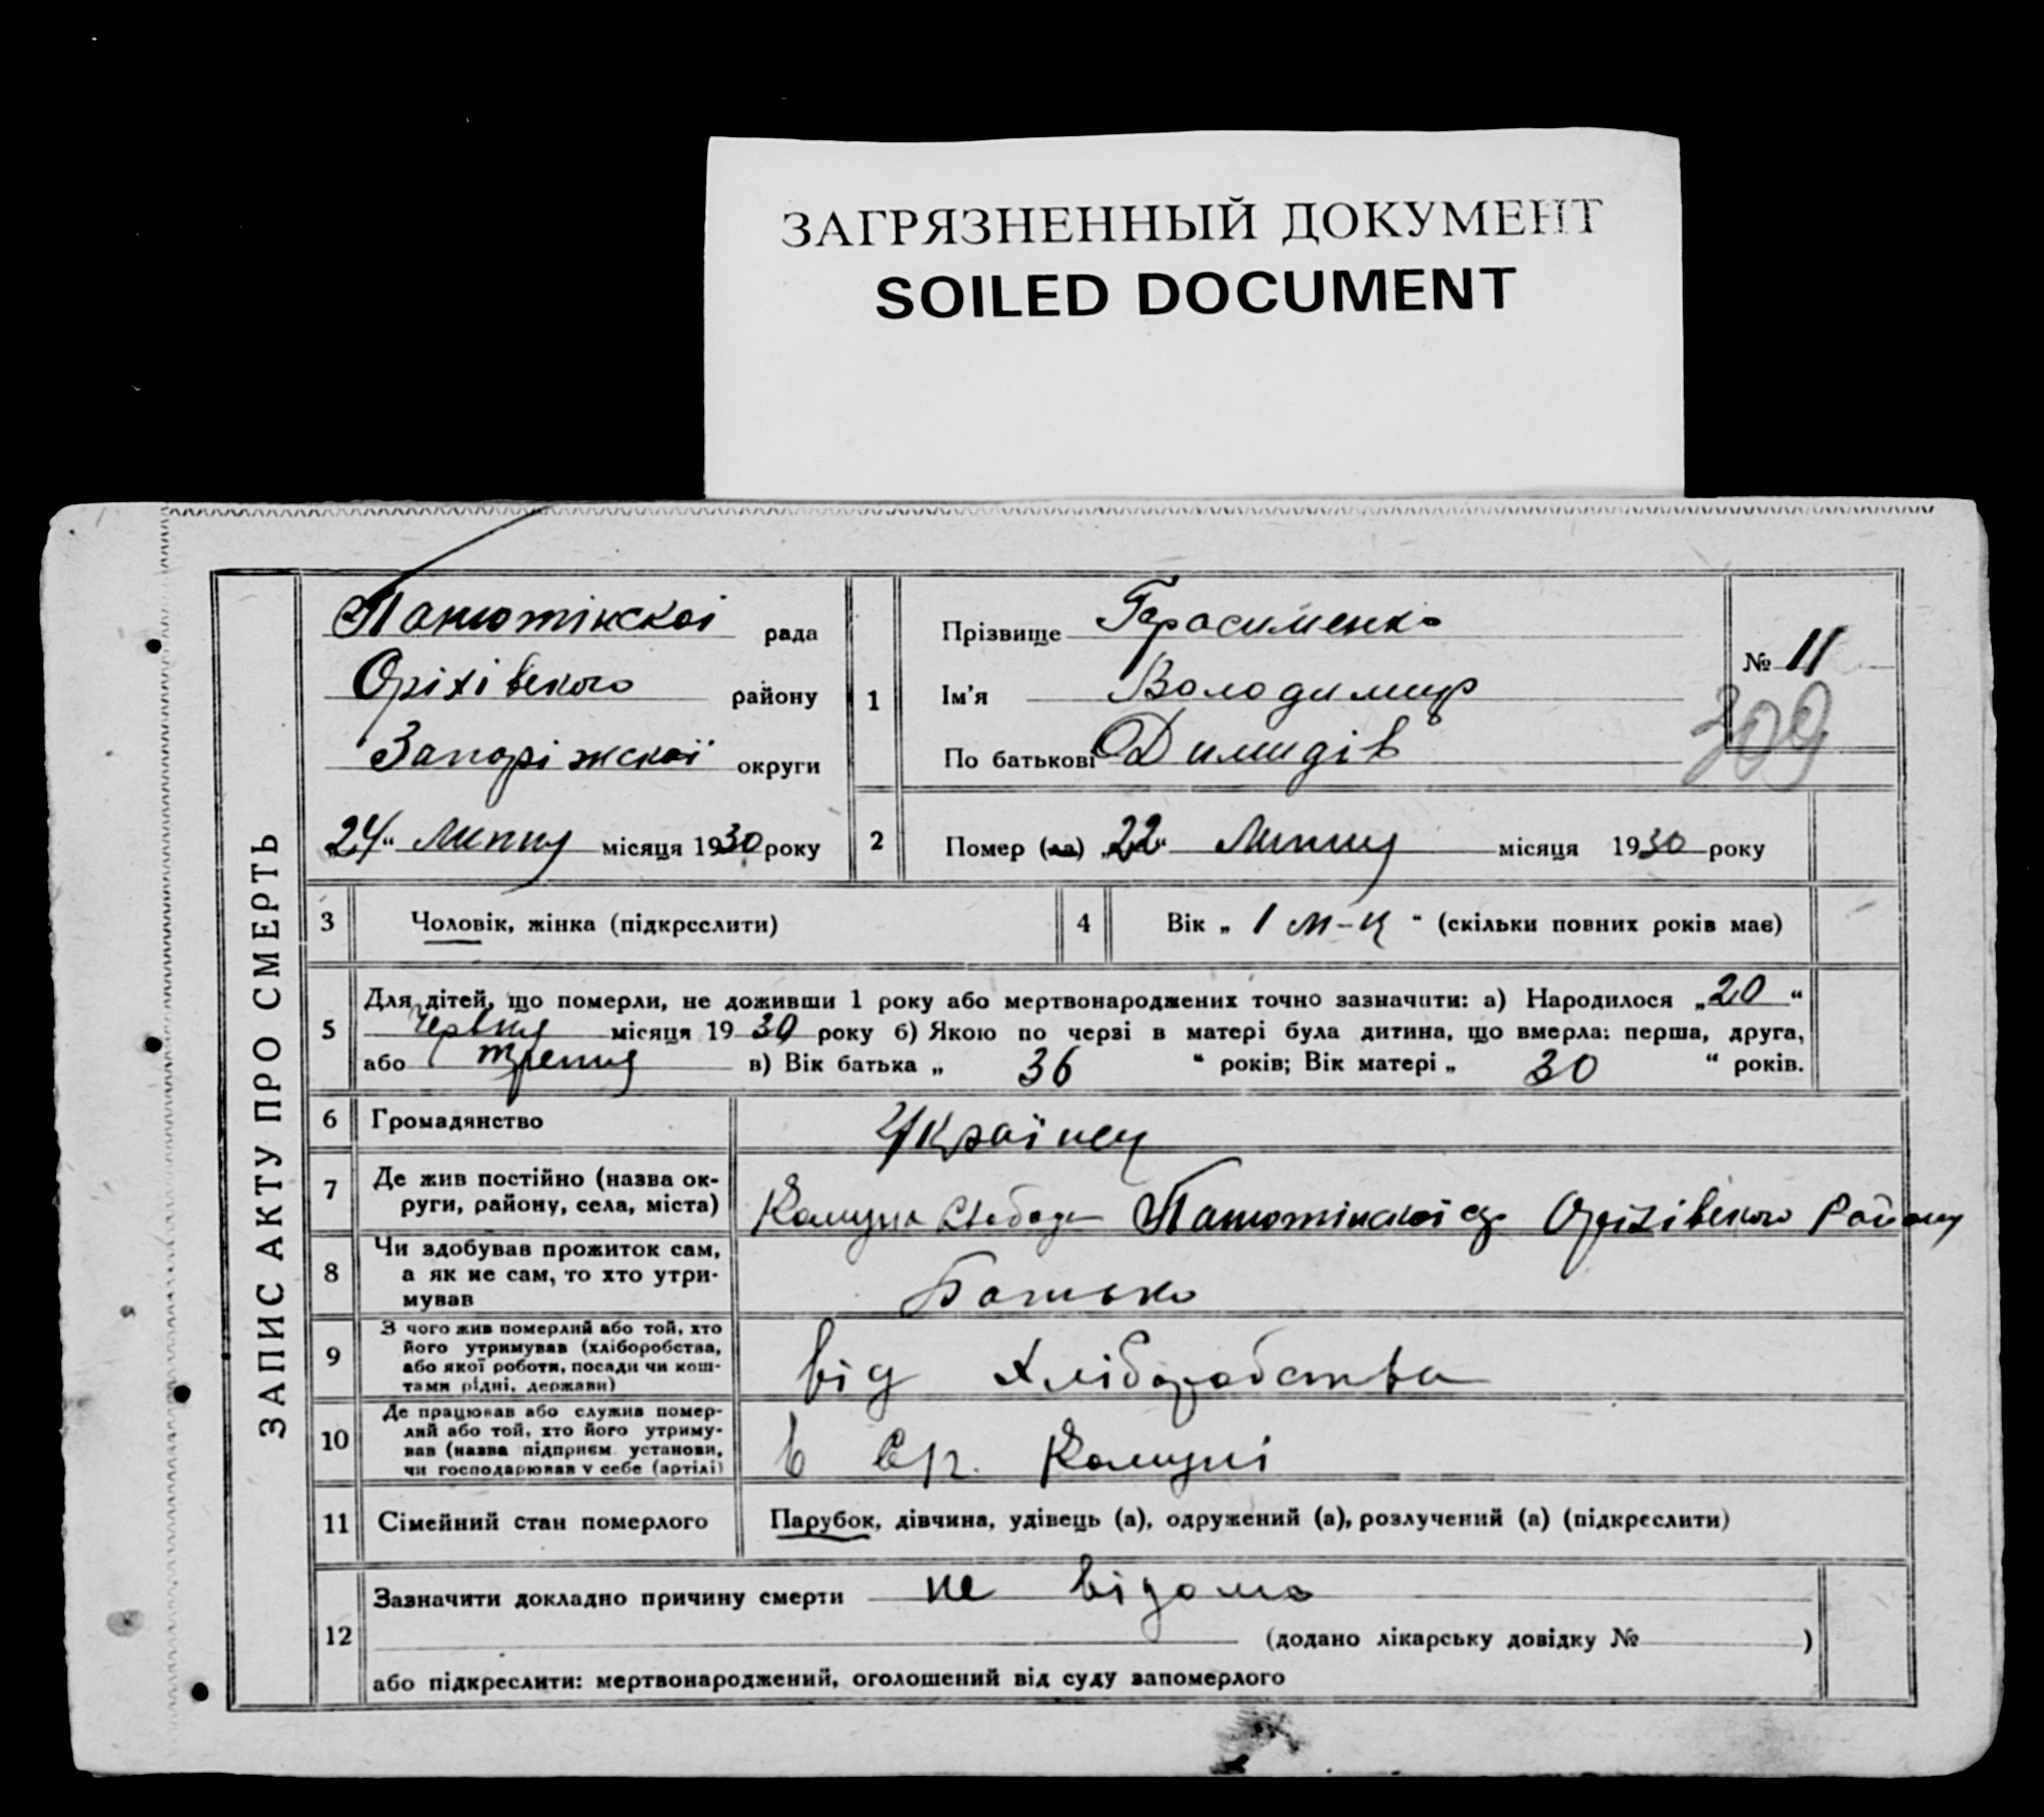 ЗАГРЯЗНЕННЫЙ ДОКУМЕНТ
SOILED DOCUMENT
ЗАПИС АКТУ ПРО СМЕРТЬ
Панютінскої рада
Оріхівського району
Запоріжскої округи
„24“ Липня місяця 1930 року
1
Прізвище Герасименко
Ім'я Володимир
По батькові Димидів
№ 11
309
2
Помер (ла) „22“ Липня місяця 1930 року
3 Чоловік, жінка (підкреслити)
4 Вік „ 1 м-ц “ (скільки повних років має)
5 Для дітей, що померли, не доживши 1 року або мертвонароджених точно зазначити: а) Народилося „20“
Червня місяця 1930 року б) Якою по черзі в матері була дитина, що вмерла: перша, друга,
або третя в) Вік батька „ 36 “ років; Вік матері „ 30 “ років.
6 Громадянство Українец
7 Де жив постійно (назва ок-
руги, району, села, міста)
Комуна Свобода Панютінскої ср Оріхівского Району
8 Чи здобував прожиток сам,
а як не сам, то хто утри-
мував
Батько
9 З чого жив померлий або той, хто
його утримував (хліборобства,
або якої роботи, посади чи кош-
тами рідні, держави)
від Хліборобства
10 Де працював або служив помер-
лий або той, хто його утриму-
вав (назва підприєм. установи,
чи господарював у себе (артілі)
в с/г. Комуні
11 Сімейний стан померлого Парубок, дівчина, удівець (а), одружений (а), розлучений (а) (підкреслити)
12 Зазначити докладно причину смерти не відомо
(додано лікарську довідку № )
або підкреслити: мертвонароджений, оголошений від суду запомерлого